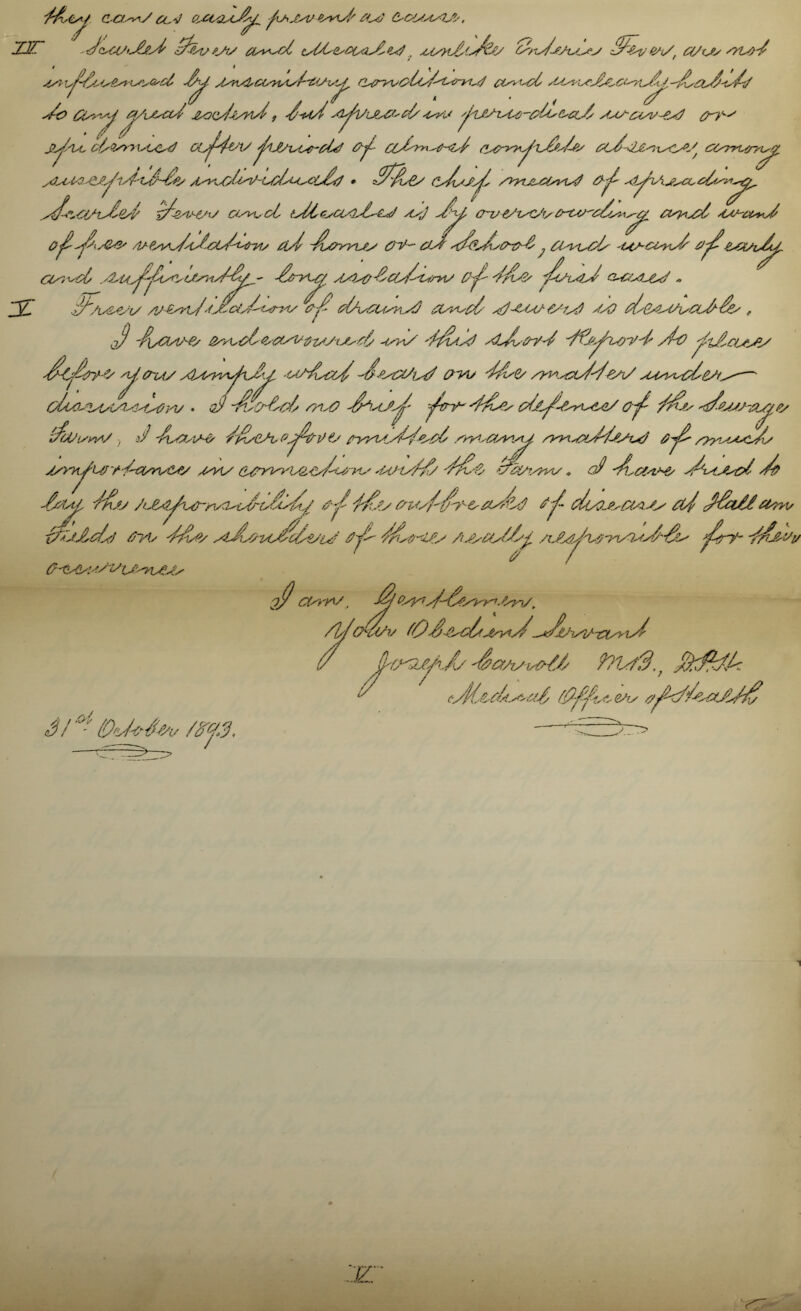 they can as easily prevent as cause.
IV Scarlet Fever and Measles, unlike Enteric Fever, are not
influenced by insanitary conditions and uncleanly habits
to any great extent, but spread in periodical waves on
epidemics after periods of almost complete absence, among
susceptible individuals. The chief means of spreading
Scarlet Fever and Measles is by overcrowding and want
of free ventilation at home or at School, and want of early
and sufficiently long isolation of the first cases.
V Free ventilation of drains and sewers is desirable,
I have endeavoured in this short Report to place
before you simply what bears on the matter under
discussion. I hold no brief for the defence of the Sewage
Farm, I have therefore omitted many matters of much
importance in connection with the Farm. I do have tried to
lay the responsibility of the outbreaks of disease at Hall am
Fields on the shoulders of those really responsible for their
occurrence
I am, Gentlemen,
Your Obedient Servant
Joseph Carroll M.B., DPH
Medical Officer of Health
31st October 1893.
V